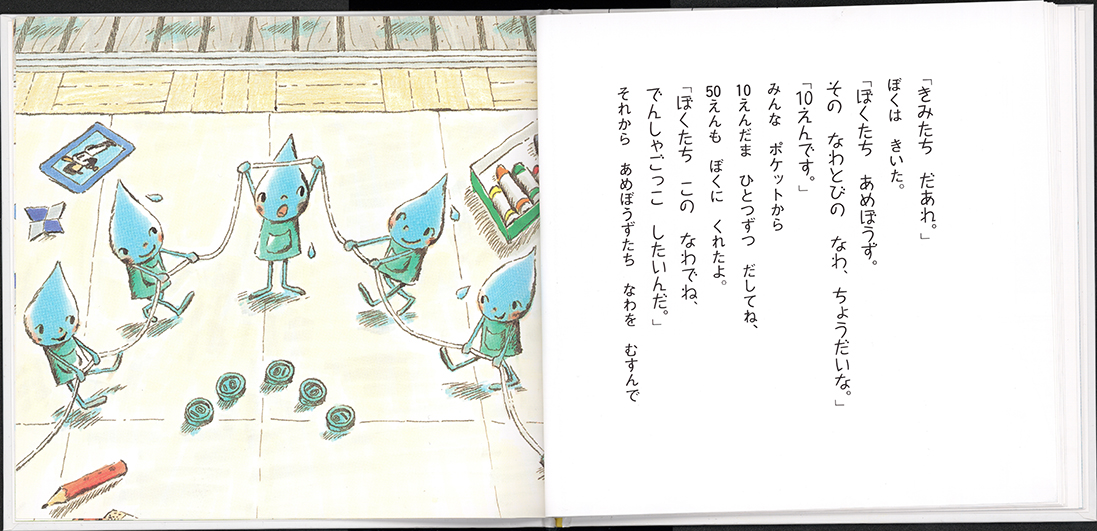 「きみたち　だあれ。」
ぼくは　きいた。
「ぼくたち　あめぼうず。
その　なわとびの　なわ、ちょうだいな。」
「10えんです。」
みんな　ポケットから
10えんだま　ひとつずつ　だしてね、
50えんも　ぼくに　くれたよ。
「ぼくたち　この　なわでね、
でんしゃごっこ　したいんだ。」
それから　あめぼうずたち　なわを　むすんで
10
10
10
10
10